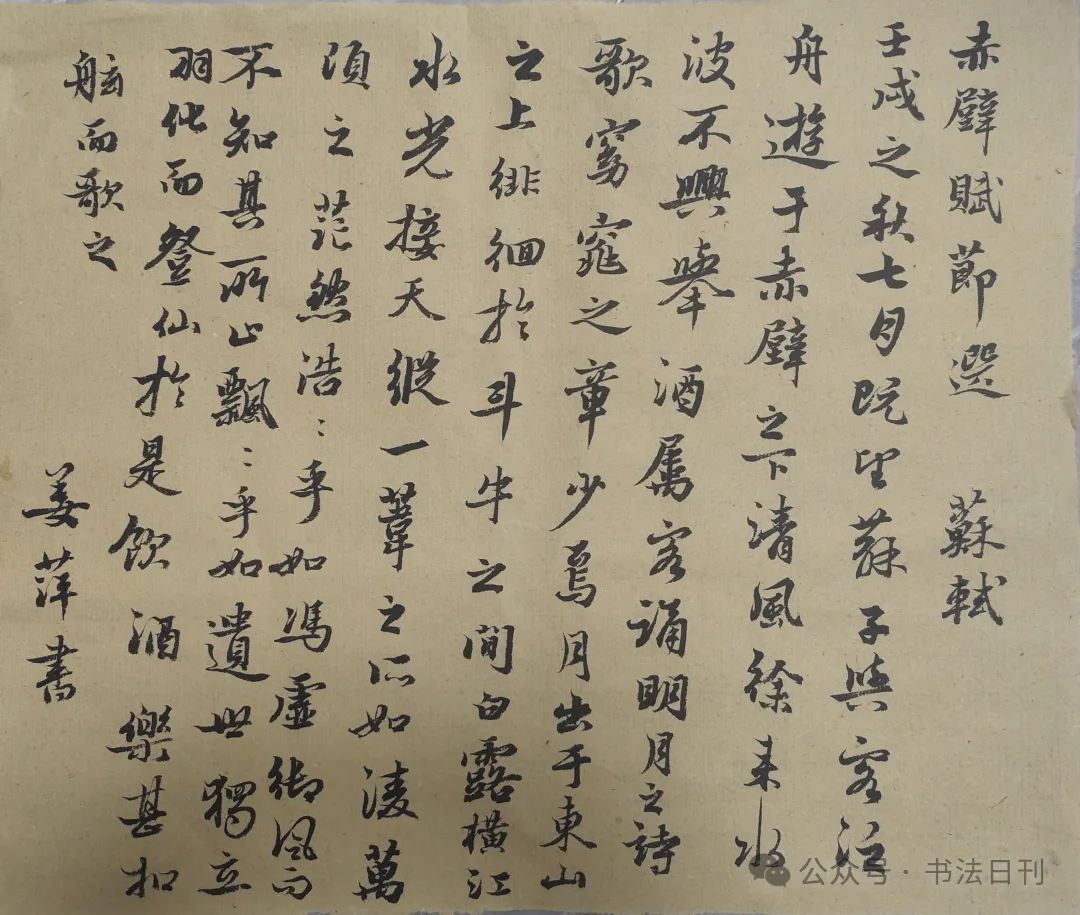 赤壁賦節選 蘇軾
壬戌之秋七月既望蘇子與客泛
舟遊于赤壁之下清風徐来水
波不興舉酒屬客誦明月之詩
歌窈窕之章少焉月出于東山
之上徘徊於斗牛之間白露橫江
水光接天縱一葦之所如凌萬
頃之茫然浩〻乎如馮虛御風而
不知其所止飄〻乎如遺世獨立
羽化而登仙於是飲酒樂甚扣
舷而歌之
姜萍書
公众号·书法日刊